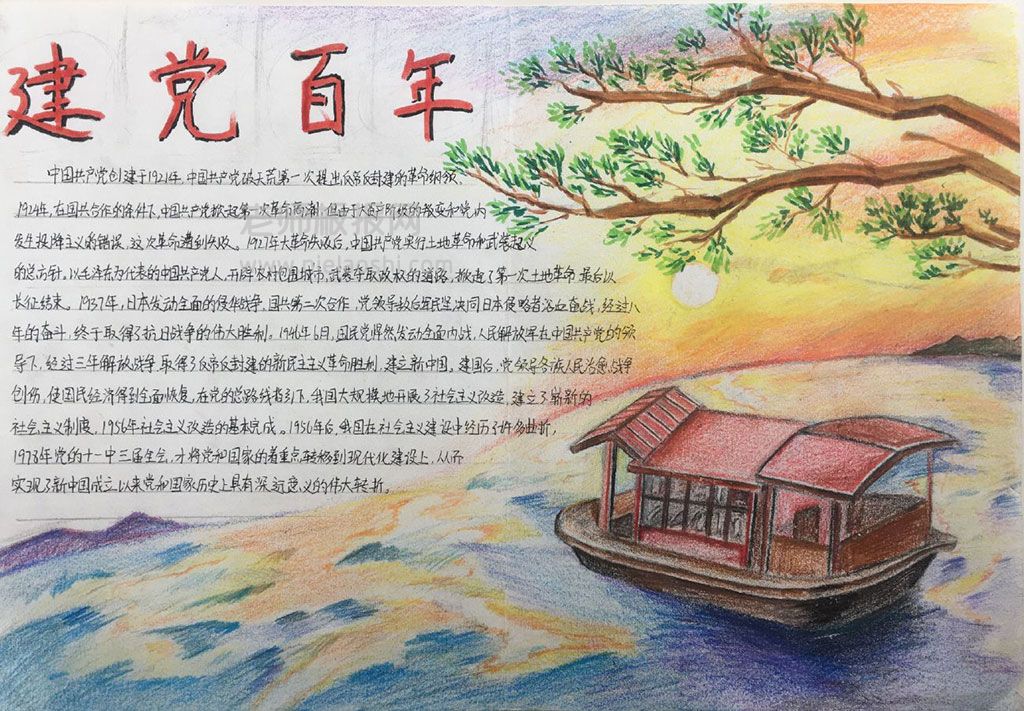 建党百年
中国共产党创建于1921年,中国共产党破天荒第一次提出反帝反封建的革命纲领、
1924年,在国共合作的条件下,中国共产党掀起第一次革命高潮,但由于大资产阶级的叛变和党内
发生投降主义的错误,这次革命遭到失败。1927年大革命失败后,中国共产党实行土地革命和武装起义
的总方针。以毛泽东为代表的中国共产党人,开辟农村包围城市,武装夺取政权的道路,掀起了第一次土地革命 最后以
长征结束。1937年,日本发动全面的侵华战争,国共第二次合作,党领导敌后军民坚决同日本侵略者浴血奋战,经过八
年的奋斗,终于取得了抗日战争的伟大胜利。1946年6月,国民党悍然发动全面内战,人民解放军在中国共产党的领
导下,经过三年解放战争,取得了反帝反封建的新民主主义革命胜利,建立新中国。建国后,党领导各族人民治愈战争
创伤,使国民经济得到全面恢复,在党的总路线指引下,我国大规模地开展了社会主义改造,建立了崭新的
社会主义制度,1956年社会主义改造的基本完成。1956年后,我国在社会主义建设中经历了许多曲折,
1978年党的十一中三届全会,才将党和国家的着重点,转移到现代化建设上,从而
实现了新中国成立以来党和国家历史上具有深远意义的伟大转折。
老师板报网